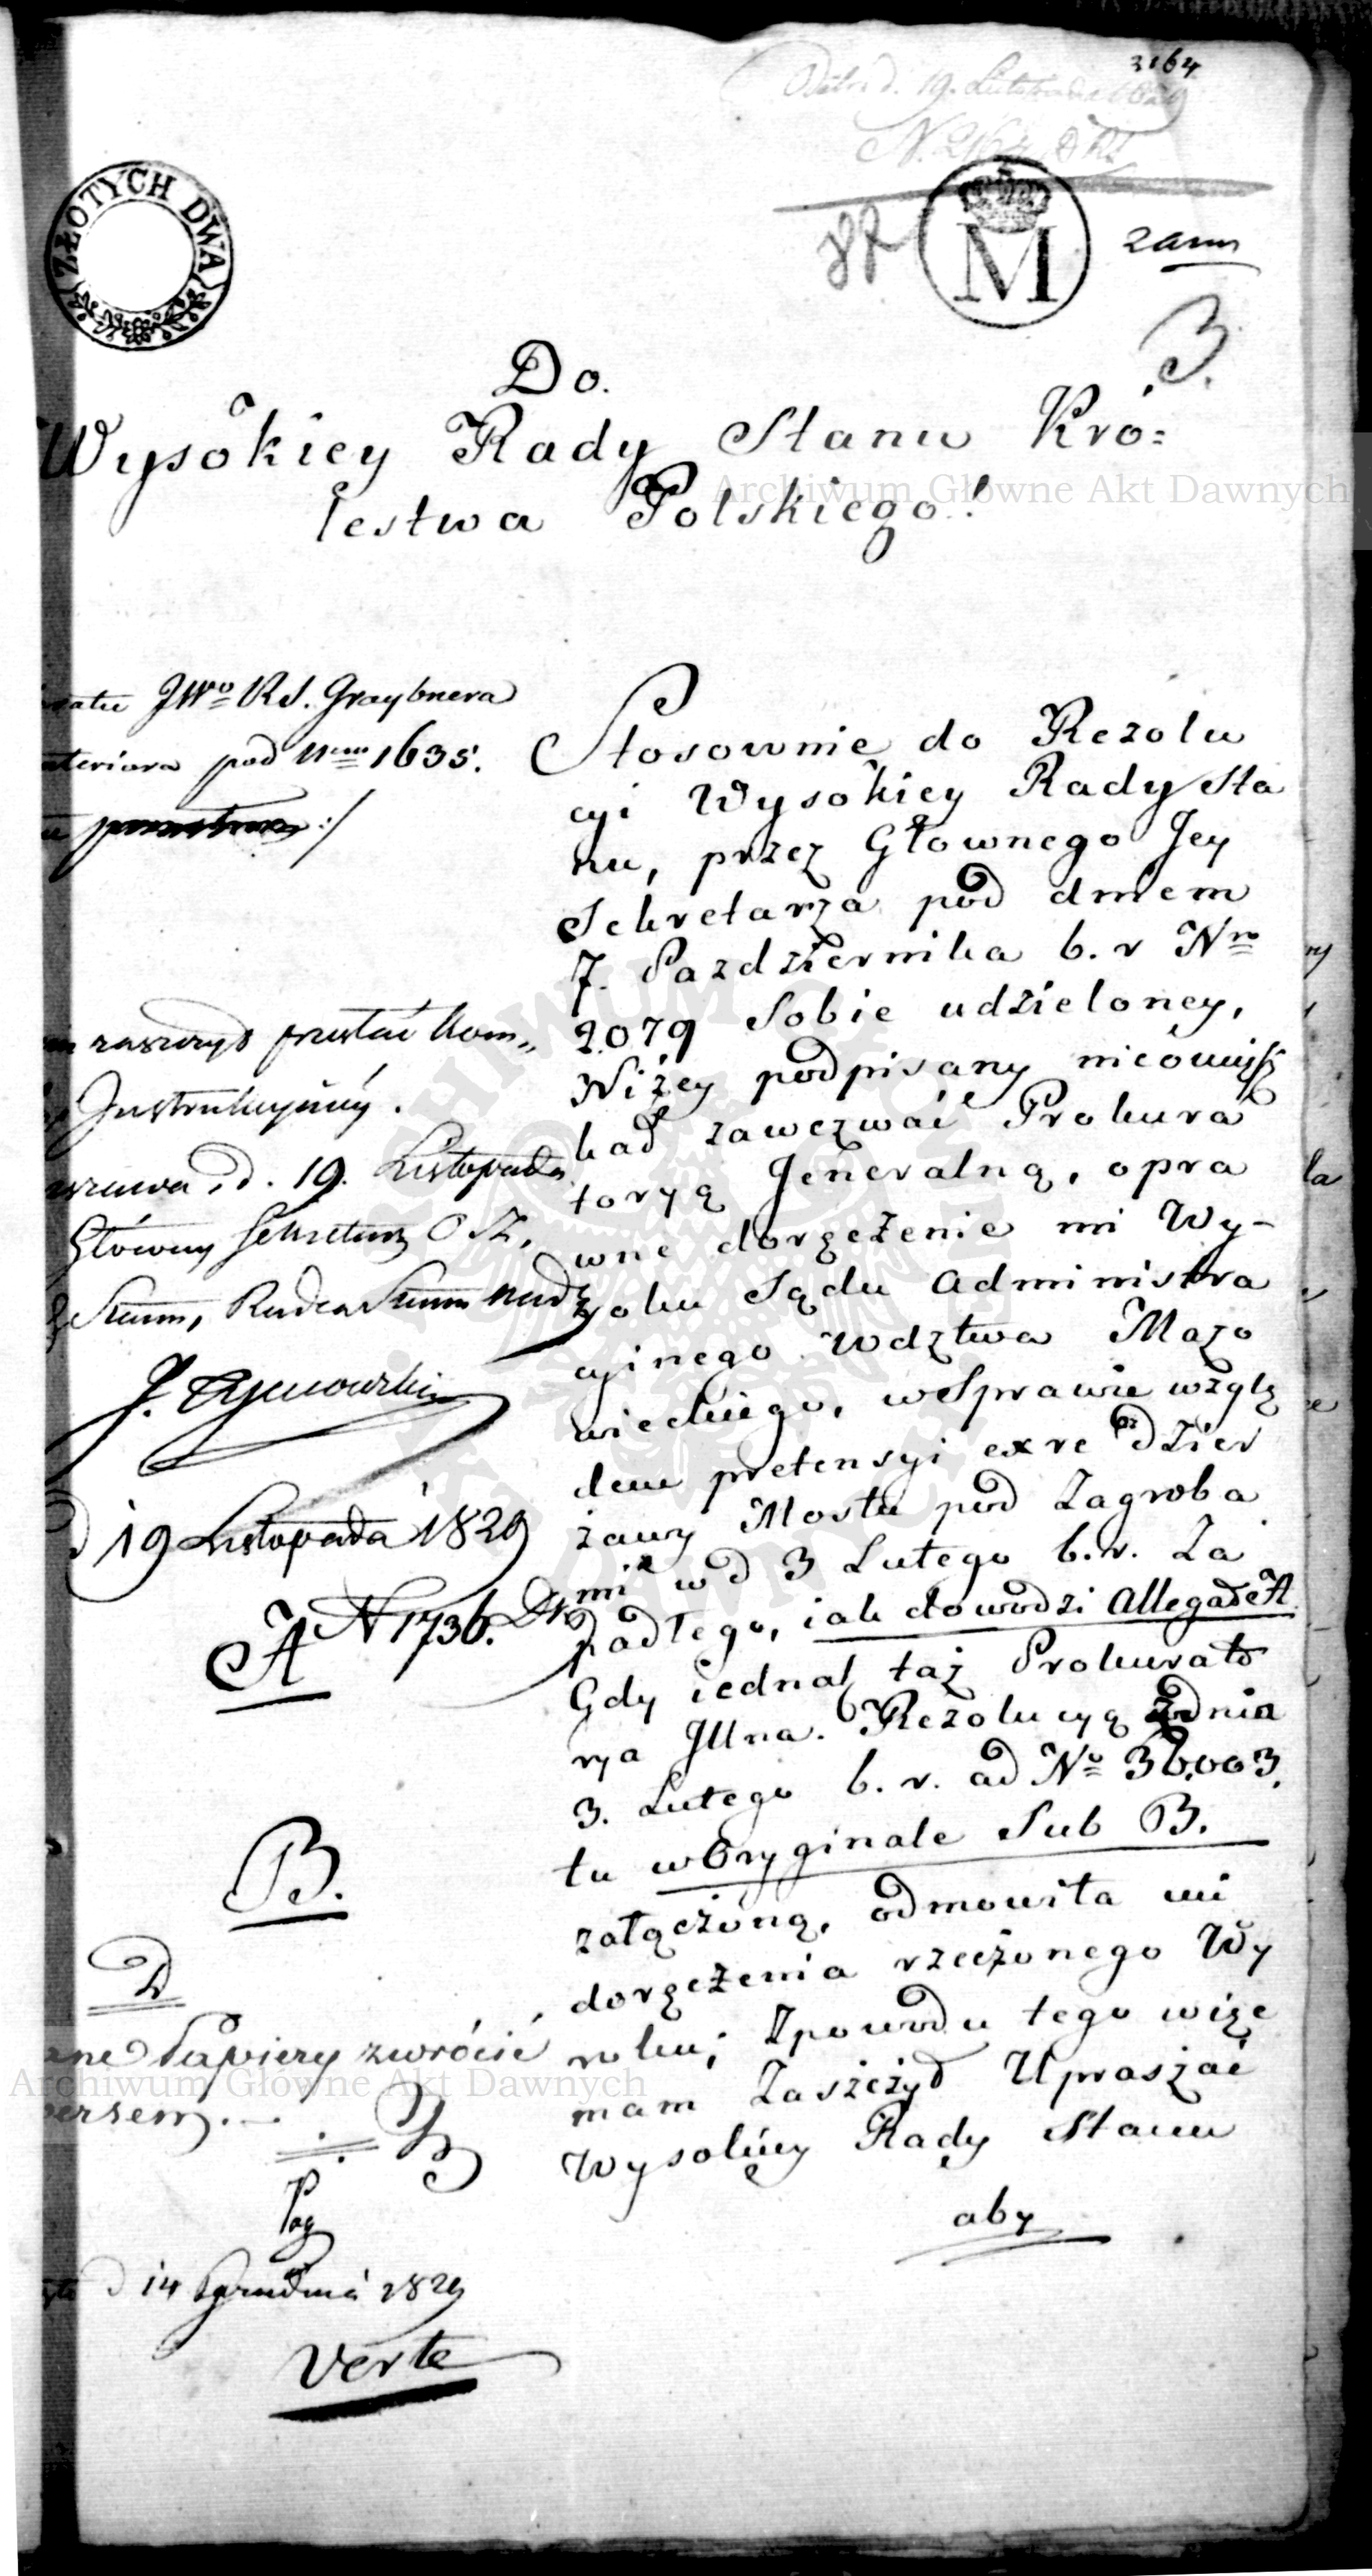 3164
d. 19. Listopada 1829
ZŁOTYCH DWA
M
3.
Do.
Wysokiey Rady Stanu Kró=
lestwa Polskiego!
Archiwum Główne Akt Dawnych
JWo RS. Graybnera
pod Nrm 1635.
zaszczyt przesłać Kom„
Instrukcyiney.
d. 19. Listopada
Główny Sekretarz
Stanu, Radca Stanu Nadz
19 Listopada 1829
N 1736. Dr
A
B.
D
Papiery zwrócić
Archiwum Główne Akt Dawnych
d 14 Grudnia 1829
Verte
Stosownie do Rezolu
cyi Wysokiey Rady Sta
nu, przez Głownego Jey
Sekretarza pod dniem
7. Pazdziernika b. r Nro
2079 Sobie udzieloney,
Niżey podpisany nieomiesz
kał zawezwać Prokura
toryą Jeneralną, o pra
wne doręczenie mi Wy-
roku Sądu Administra
cyinego Wdztwa Mazo
wieckiego, w Sprawie wzglę
dem pretensyi ex re dzier
żawy Mostu pod Zagroba
mi w d 3 Lutego b. r. Za
padłego, iak dowodzi Allegat A
Gdy iednak taż Prokurato
rya Jllna. Rezolucyą z dnia
3. Lutego b. r. ad No 36,003.
tu w Oryginale Sub B.
załączoną, odmowiła mi
doręczenia rzeczonego Wy
roku; Z powodu tego więc
mam Zaszczyd Upraszać
Wysokiey Rady Stanu
aby